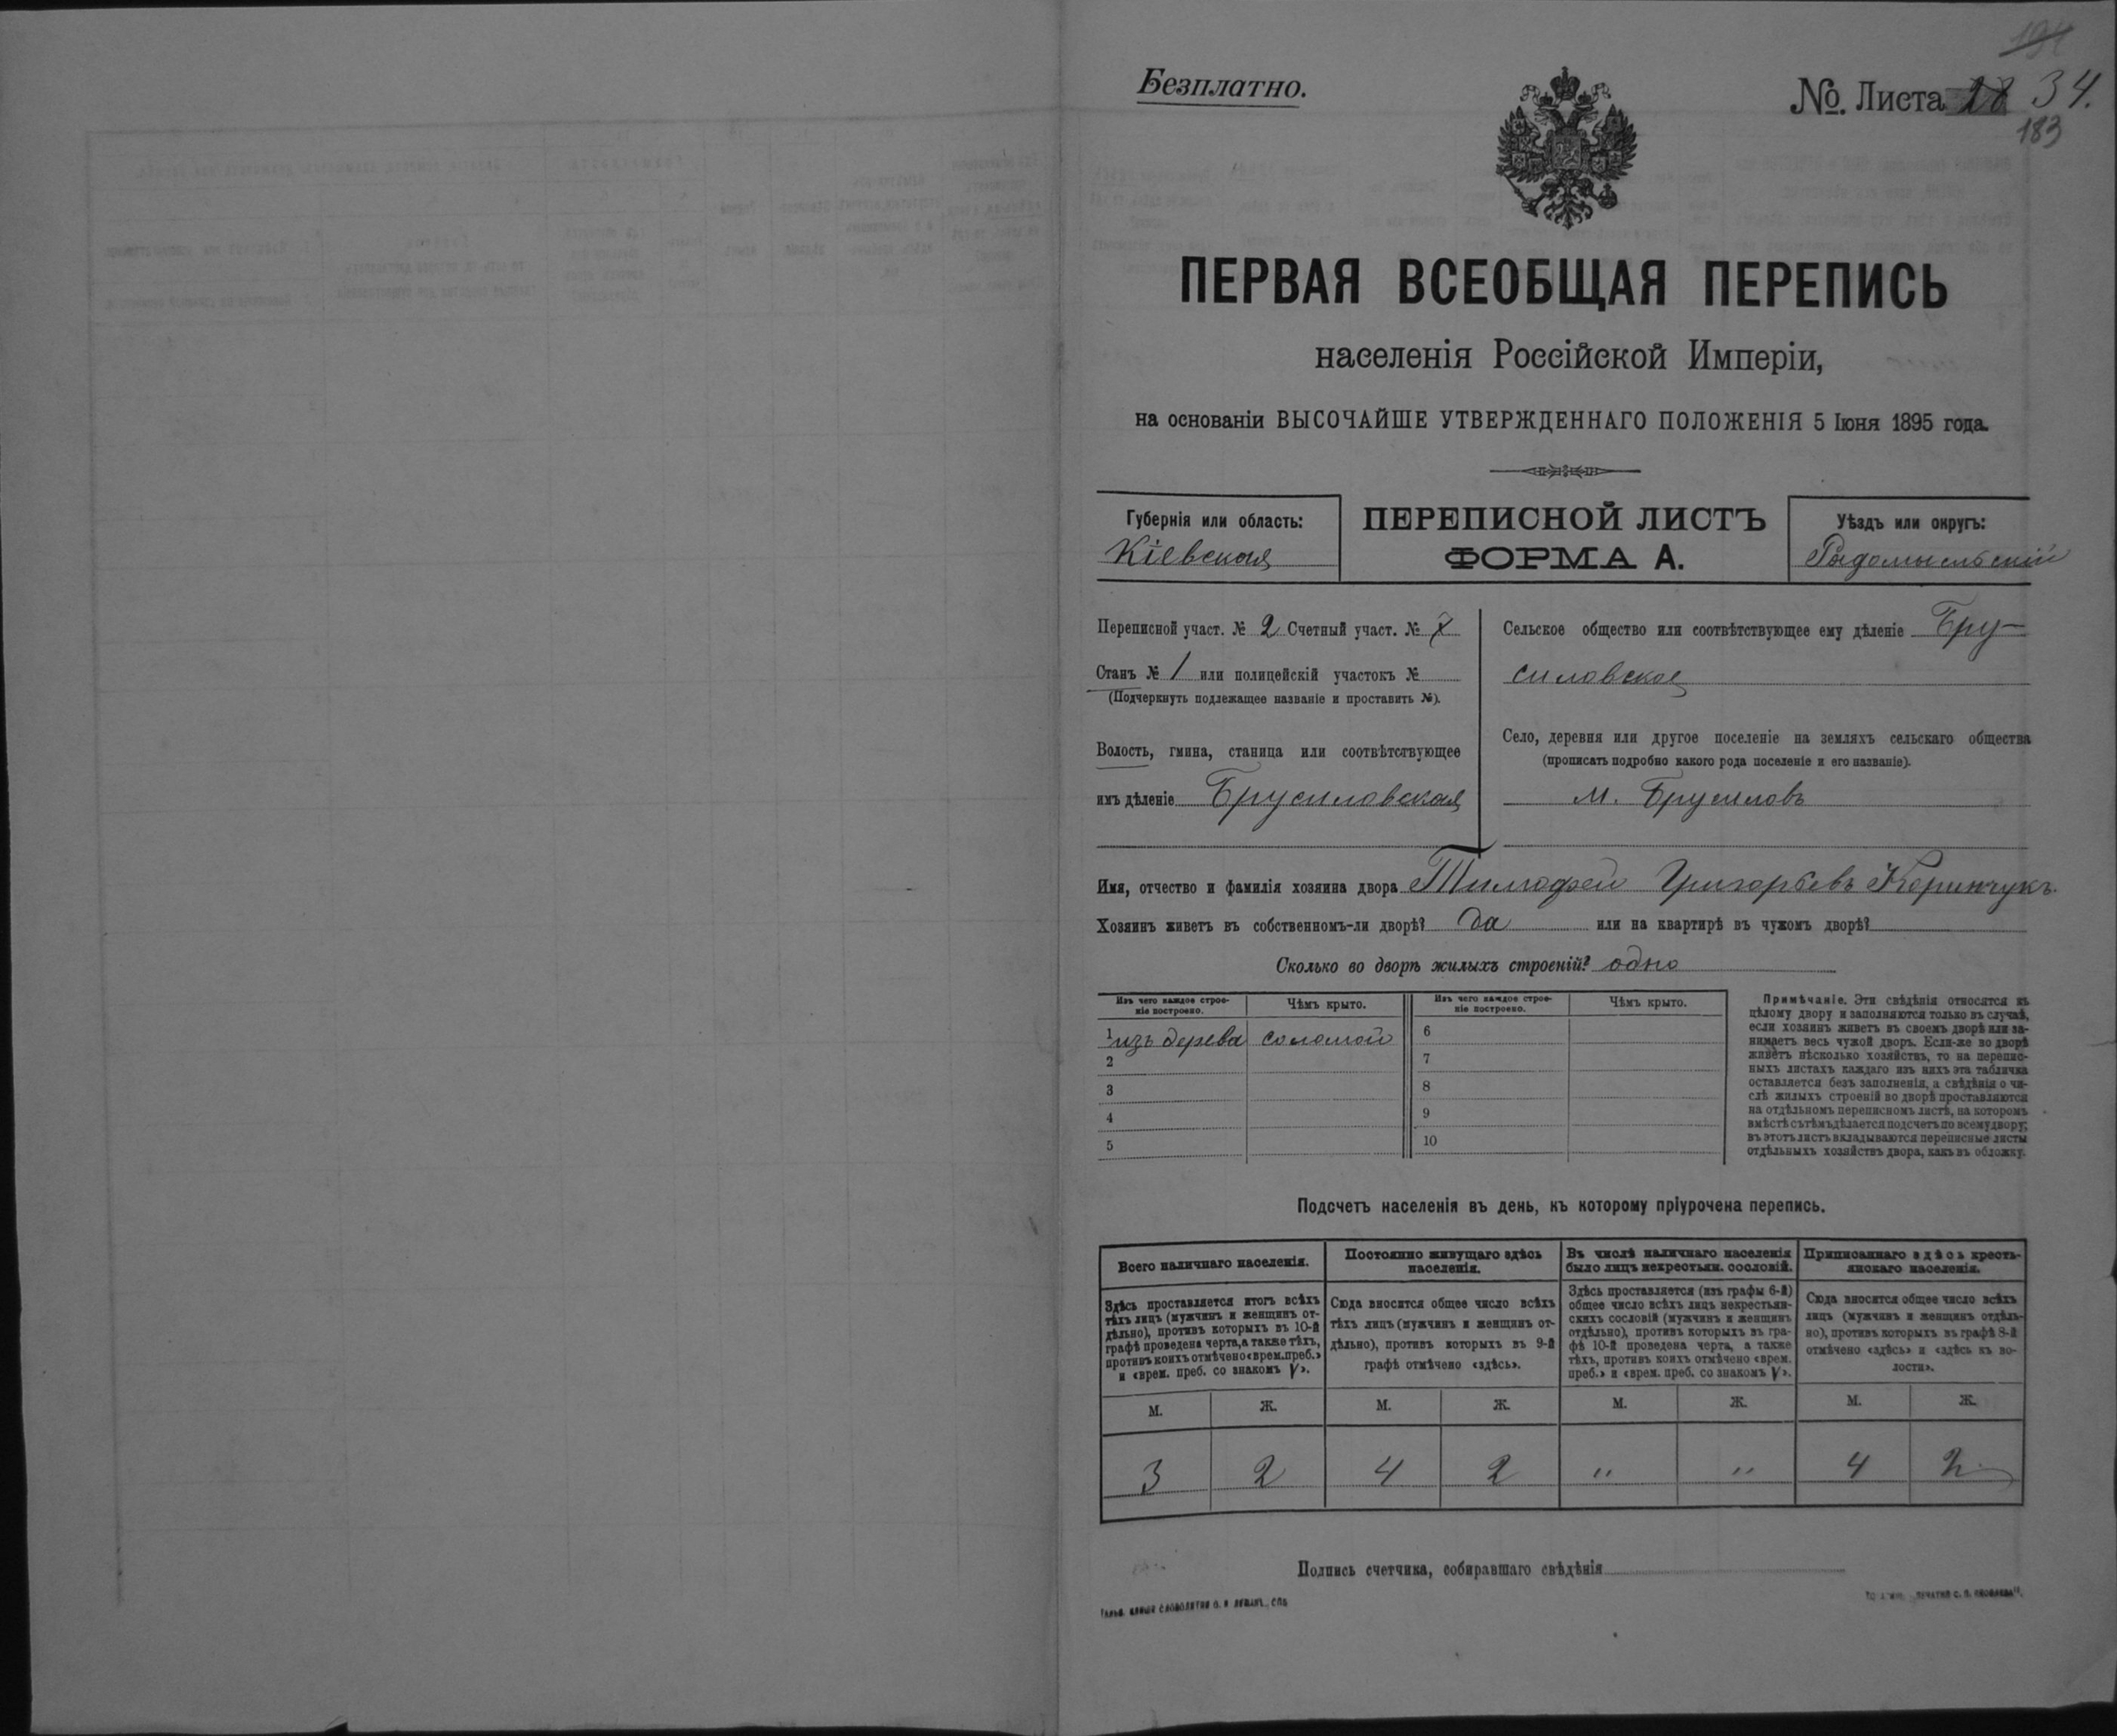 Безплатно.
№ Листа 34.
183
ПЕРВАЯ ВСЕОБЩАЯ ПЕРЕПИСЬ
населенія Россійской Имперіи,
на основаніи ВЫСОЧАЙШЕ УТВЕРЖДЕННАГО ПОЛОЖЕНІЯ 5 Іюня 1895 года.
Губернія или область:
Кіевская
ПЕРЕПИСНОЙ ЛИСТЪ
ФОРМА А.
Уѣздъ или округъ:
Радомысльскій
Переписной участ. № 2 Счетный участ. №
Станъ № 1 или полицейскій участокъ №
(Подчеркнуть подлежащее названіе и проставить №).
Волость, гмина, станица или соотвѣтствующее
имъ дѣленіе Брусиловская
Сельское общество или соотвѣтствующее ему дѣленіе Бру-
силовское
Село, деревня или другое поселеніе на земляхъ сельскаго общества
(прописать подробно какого рода поселеніе и его названіе).
м. Брусиловъ
Имя, отчество и фамилія хозяина двора Тимофей Григорьевъ Керинчукъ.
Хозяинъ живетъ въ собственномъ-ли дворѣ? Да или на квартирѣ въ чужомъ дворѣ?
Сколько во дворѣ жилыхъ строеній? одно
Изъ чего каждое строе-
ніе построено.
Чѣмъ крыто.
Изъ чего каждое строе-
ніе построено.
Чѣмъ крыто.
1 изъ дерева соломой 6
2 7
3 8
4 9
5 10
Примѣчаніе. Эти свѣдѣнія относятся къ
цѣлому двору и заполняются только въ случаѣ,
если хозяинъ живетъ въ своемъ дворѣ или за-
нимаетъ весь чужой дворъ. Если-же во дворѣ
живетъ нѣсколько хозяйствъ, то на перепис-
ныхъ листахъ каждаго изъ нихъ эта табличка
оставляется безъ заполненія, а свѣдѣнія о чи-
слѣ жилыхъ строеній во дворѣ проставляются
на отдѣльномъ переписномъ листѣ, на которомъ
вмѣстѣ съ тѣмъ дѣлается подсчетъ по всему двору;
въ этотъ листъ вкладываются переписные листы
отдѣльныхъ хозяйствъ двора, какъ въ обложку.
Подсчетъ населенія въ день, къ которому пріурочена перепись.
Всего наличнаго населенія.
Здѣсь проставляется итогъ всѣхъ
тѣхъ лицъ (мужчинъ и женщинъ от-
дѣльно), противъ которыхъ въ 10-й
графѣ проведена черта, а также тѣхъ,
противъ коихъ отмѣчено «врем. преб.»
и «врем. преб. со знакомъ V».
Постоянно живущаго здѣсь
населенія.
Сюда вносится общее число всѣхъ
тѣхъ лицъ (мужчинъ и женщинъ от-
дѣльно), противъ которыхъ въ 9-й
графѣ отмѣчено «здѣсь».
Въ числѣ наличнаго населенія
было лицъ некрестьян. сословій.
Здѣсь проставляется (изъ графы 6-й)
общее число всѣхъ лицъ некрестьян-
скихъ сословій (мужчинъ и женщинъ
отдѣльно), противъ которыхъ въ гра-
фѣ 10-й проведена черта, а также
тѣхъ, противъ коихъ отмѣчено «врем.
преб.» и «врем. преб. со знакомъ V».
Приписаннаго здѣсь кресть-
янскаго населенія.
Сюда вносится общее число всѣхъ
лицъ (мужчинъ и женщинъ отдѣль-
но), противъ которыхъ въ графѣ 8-й
отмѣчено «здѣсь» и «здѣсь въ во-
лости».
М. Ж. М. Ж. М. Ж. М. Ж.
3 2 4 2 " " 4 2
Подпись счетчика, собиравшаго свѣдѣнія